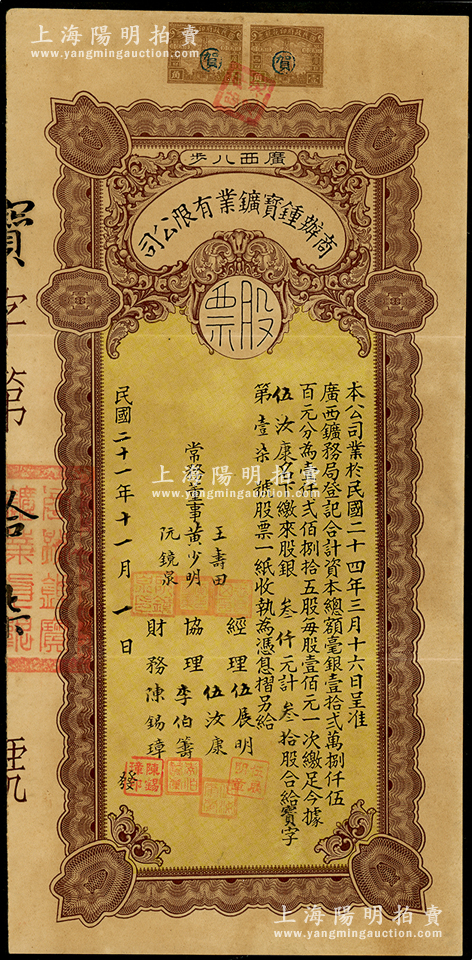 上海陽明拍賣
www.yangmingauction.com
賀
賀
廣西八步
商辦鍾寶鑛業有限公司
股票
本公司業於民國二十四年三月十六日呈准
廣西鑛務局登記合計資本總額毫銀壹拾弍萬捌仟伍
百元分為壹仟弍佰捌拾五股每股壹佰元一次繳足今據
伍汝康名下繳來股銀 叁仟元計 叁拾股合給寶字
第 壹柒 號股票一紙收執為憑息摺另給
王壽田
常務董事黃少明
阮鏡泉
經理伍展明
伍汝康
協理李伯籌
財務陳錫璋
發
民國二十一年十一月一日
寶字第 拾柒 號
上海陽明拍賣
www.yangmingauction.com
上海陽明拍賣
www.yangmingauction.com